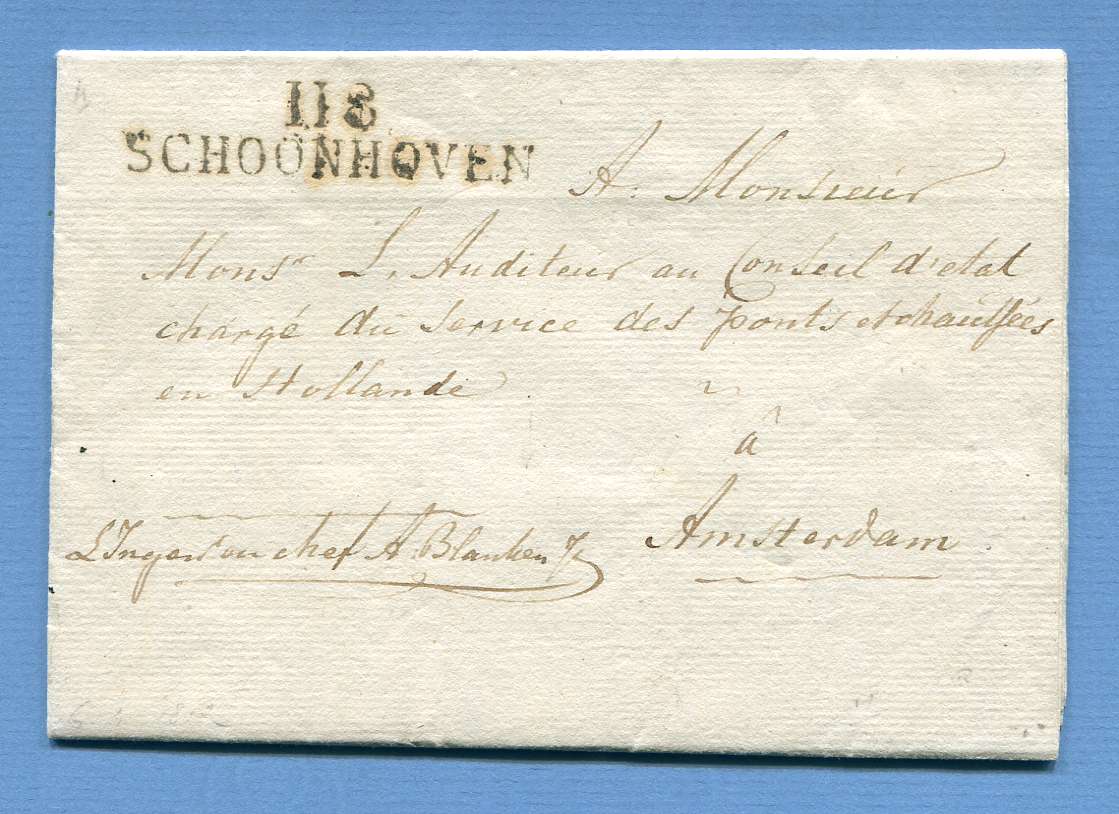 118
SCHOONHOVEN
A. Monsieur
Monsr L. Auditeur au Conseil d'etat
chargé du service des ponts et chaussées
en Hollande
à
Amsterdam
L'Ingenr en chef A. Blanken Jz